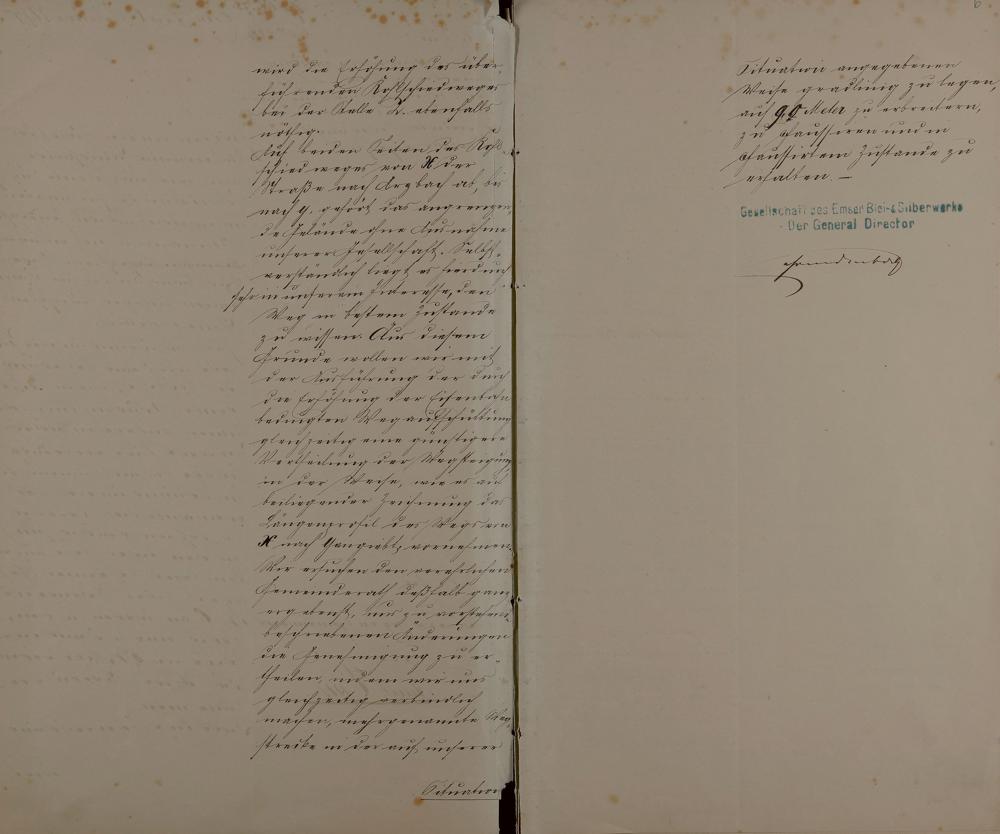 wird die Erhöhung des über-
führenden Kohlschiedweges
bei der Stelle K. ebenfalls
nöthig.
Auf beiden Seiten des Kohl-
schiedweges von X der
Straße nach Arzbach ab, bis
nach g. gehört das angrenzen-
de Gelände ohne Ausnahme
unserer Gesellschaft. Selbst-
verständlich liegt es hierdurch
sehr in unserem Interesse, den
Weg in bestem Zustande
zu wissen. Aus diesem
Grunde wollen wir mit
der Ausführung der durch
die Erhöhung der Eisenbahn
bedingten Wegaufschüttung
gleichzeitig eine günstigere
Vertheilung der Wegsteigung
in der Weise, wie es auf
beiliegender Zeichnung das
Längenprofil des Wegs von
X nach G angiebt, vornehmen.
Wir ersuchen den verehrlichen
Gemeinderath deßhalb ganz
ergebenst, uns zu vorstehend
beschriebenen Änderungen
die Genehmigung zu er-
theilen, indem wir uns
gleichzeitig verbindlich
machen, mehrgenannte Weg-
strecke in der auf unserer
Situation
6
Situation angegebenen
Weise gradlinig zu legen,
auf 9,0 Meter zu erbreitern,
zu chaussiren und in
chaussirtem Zustande zu
erhalten. —
Gesellschaft des Emser Blei- & Silberwerks
Der General Director